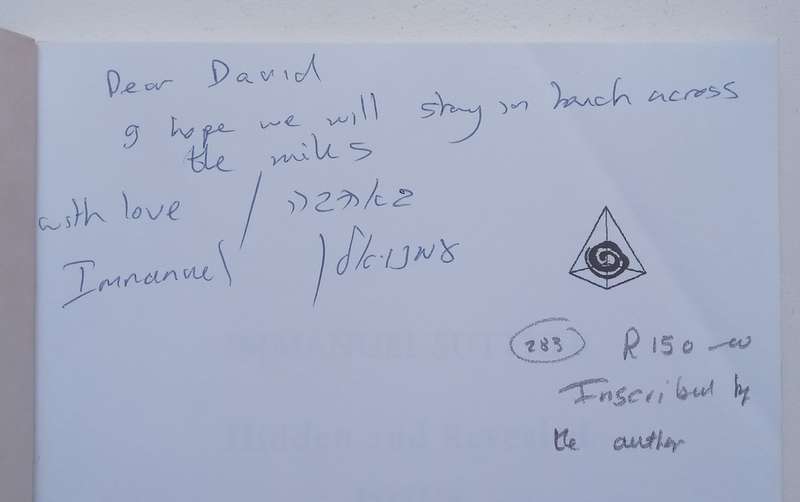 Dear David
I hope we will stay in touch across
the miles
with love / באהבה
Immanuel / עמנואל
283 R150-00
Inscribed by
the author
Hidden and Revealed